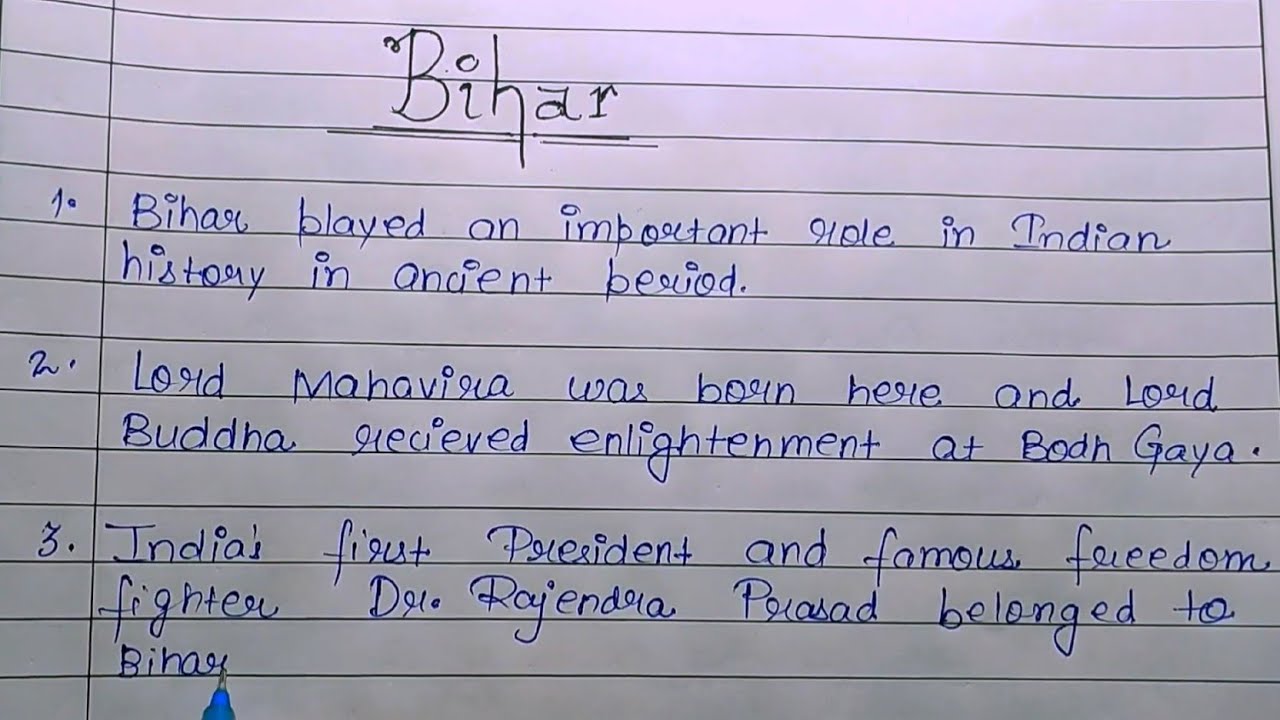 Bihar
1. Bihar played an important role in Indian
history in ancient period.
2. Lord Mahavira was born here and Lord
Buddha recieved enlightenment at Bodh Gaya.
3. India's first President and famous freedom
fighter Dr. Rajendra Prasad belonged to
Bihar